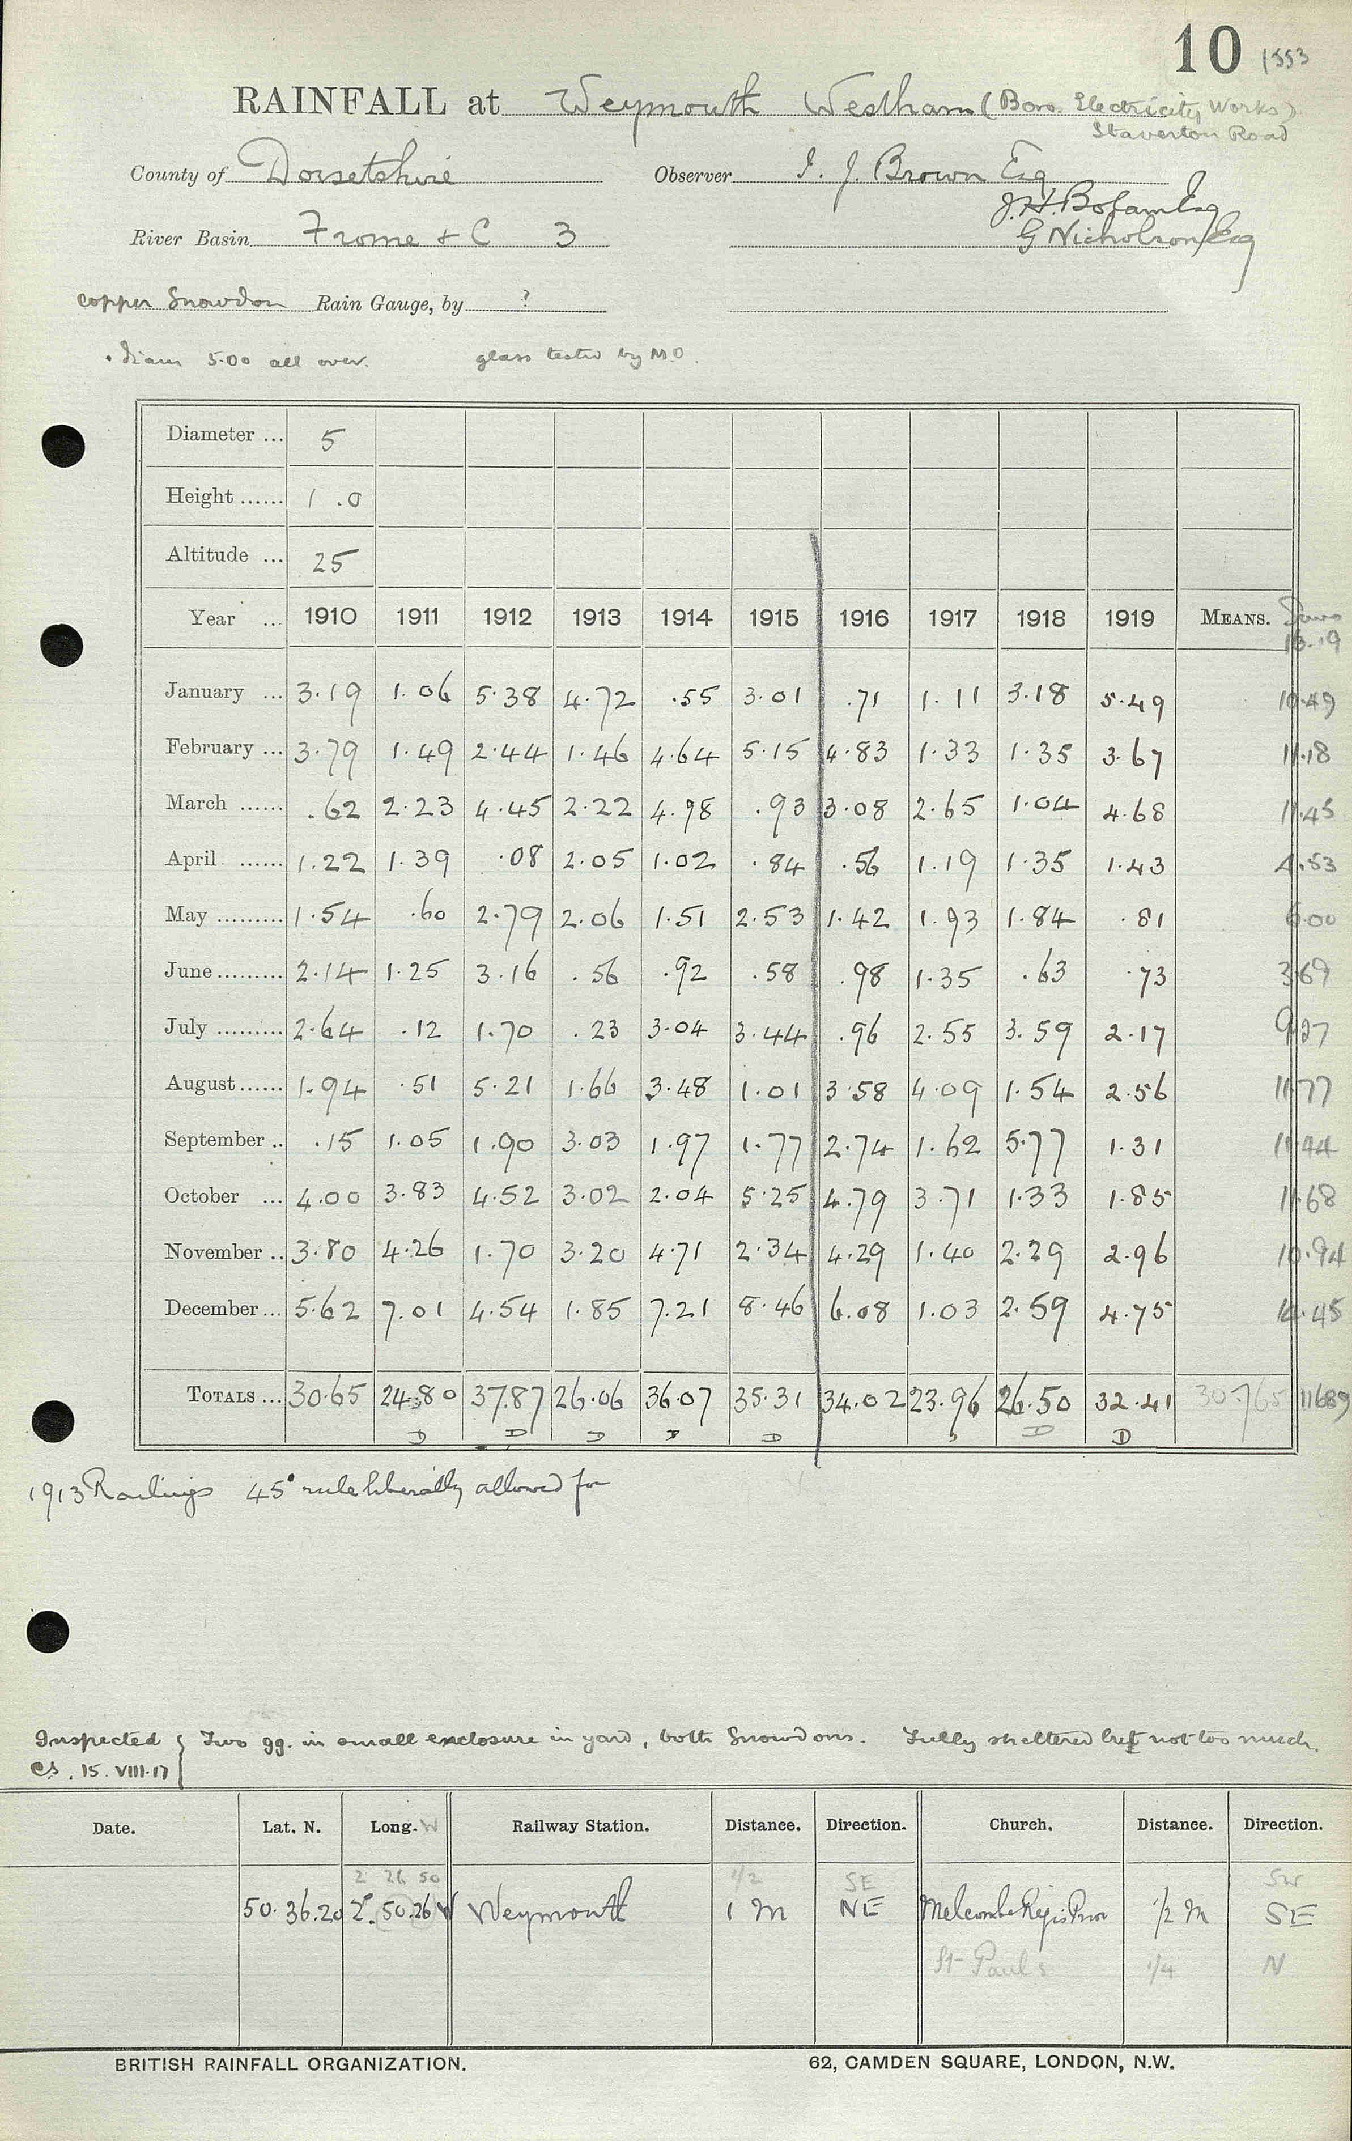 10 1553
RAINFALL at Weymouth Westham (Boro. Electricity Works)
Staverton Road
County of Dorsetshire Observer I. J. Brown Esq
J. H. Bolam Esq
River Basin Frome & C 3 G Nicholson Esq
copper Snowdon Rain Gauge, by ?
Diam 5.00 all over. glass tested by M.O.
Diameter ... 5
Height ...... 1.0
Altitude ... 25
Year ... 1910 1911 1912 1913 1914 1915 1916 1917 1918 1919 MEANS. Sums
16-19
January ... 3.19 1.06 5.38 4.72 .55 3.01 .71 1.11 3.18 5.49 10.49
February ... 3.79 1.49 2.44 1.46 4.64 5.15 4.83 1.33 1.35 3.67 11.18
March ...... .62 2.23 4.45 2.22 4.98 .93 3.08 2.65 1.04 4.68 11.45
April ...... 1.22 1.39 .08 2.05 1.02 .84 .56 1.19 1.35 1.43 4.53
May ......... 1.54 .60 2.79 2.06 1.51 2.53 1.42 1.93 1.84 .81 6.00
June ......... 2.14 1.25 3.16 .56 .92 .58 .98 1.35 .63 .73 3.69
July ......... 2.64 .12 1.70 .23 3.04 3.44 .96 2.55 3.59 2.17 9.27
August ...... 1.94 .51 5.21 1.66 3.48 1.01 3.58 4.09 1.54 2.56 11.77
September .. .15 1.05 1.90 3.03 1.97 1.77 2.74 1.62 5.77 1.31 11.44
October ... 4.00 3.83 4.52 3.02 2.04 5.25 4.79 3.71 1.33 1.85 11.68
November .. 3.80 4.26 1.70 3.20 4.71 2.34 4.29 1.40 2.29 2.96 10.94
December ... 5.62 7.01 4.54 1.85 7.21 8.46 6.08 1.03 2.59 4.75 14.45
TOTALS ... 30.65 24.80 37.87 26.06 36.07 35.31 34.02 23.96 26.50 32.41 30.765 116.89
D D D D D D D D
1913 Railings 45° rule liberally allowed for
Inspected } Two gg. in small enclosure in yard, both Snowdons. Fully sheltered but not too much.
CS. 15.VIII.17
Date. Lat. N. Long. W Railway Station. Distance. Direction. Church. Distance. Direction.
2 26 50 1/2 SE SW
50.36.20 2°.50.26 W Weymouth 1 m NE Melcombe Regis 1/2 m SE
St Pauls 1/4 N
BRITISH RAINFALL ORGANIZATION. 62, CAMDEN SQUARE, LONDON, N.W.